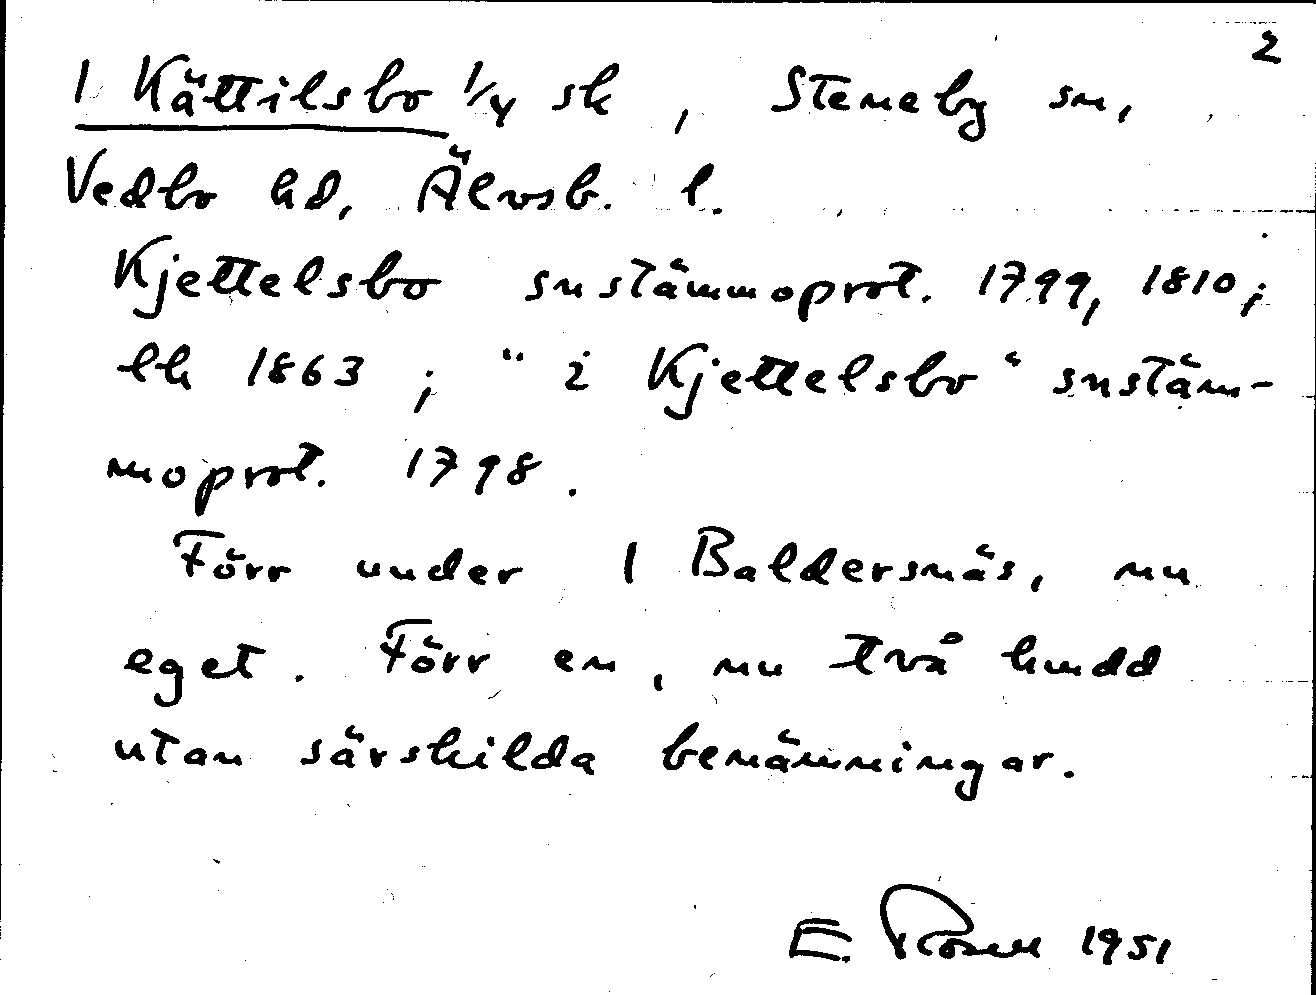 2
1 Kättilsbo 1/4 sk, Steneby sn,
Vedbo hd, Älvsb. l.
Kjettelsbo snstämmoprot. 1799, 1810;
lh 1863; "i Kjettelsbo" snstäm-
moprot. 1798.
Förr under 1 Baldersnäs, nu
eget. Förr en, nu två hmdd
utan särskilda benämningar.
E. Rosell 1951